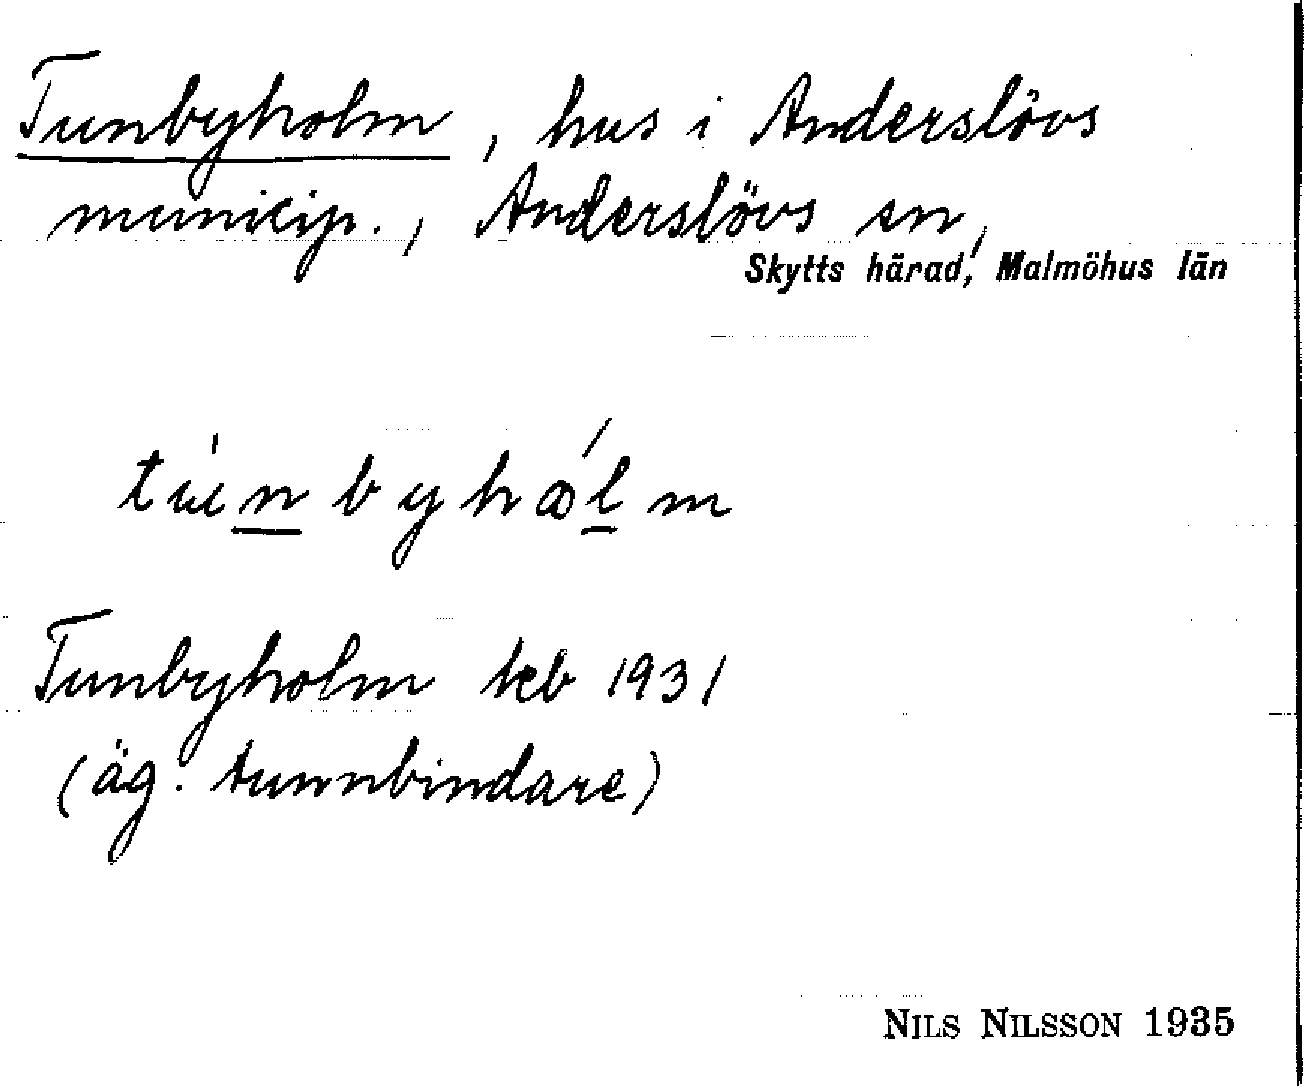 Tunbyholm, hus i Anderslövs
municip., Anderslövs sn,
Skytts härad, Malmöhus län
tunbyhål m
Tunbyholm teb 1931
(äg. tunnbindare)
NILS NILSSON 1935